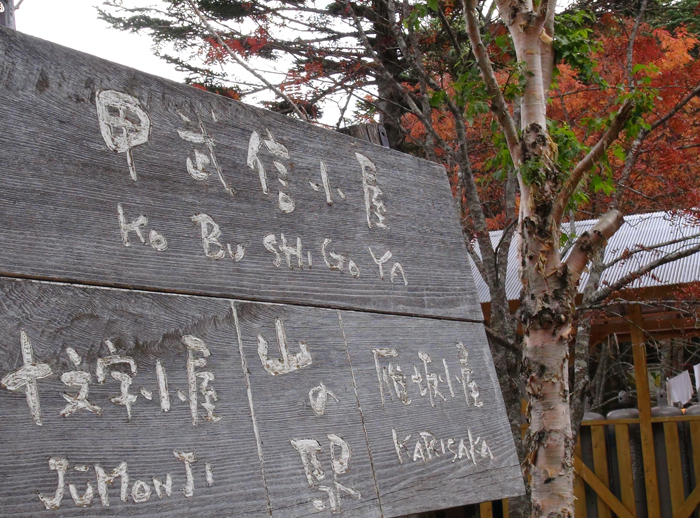 甲武信小屋
Ko Bu SHi Go Ya
十文字小屋
JūMonJi
山の駅
雁坂小屋
KARISAKA